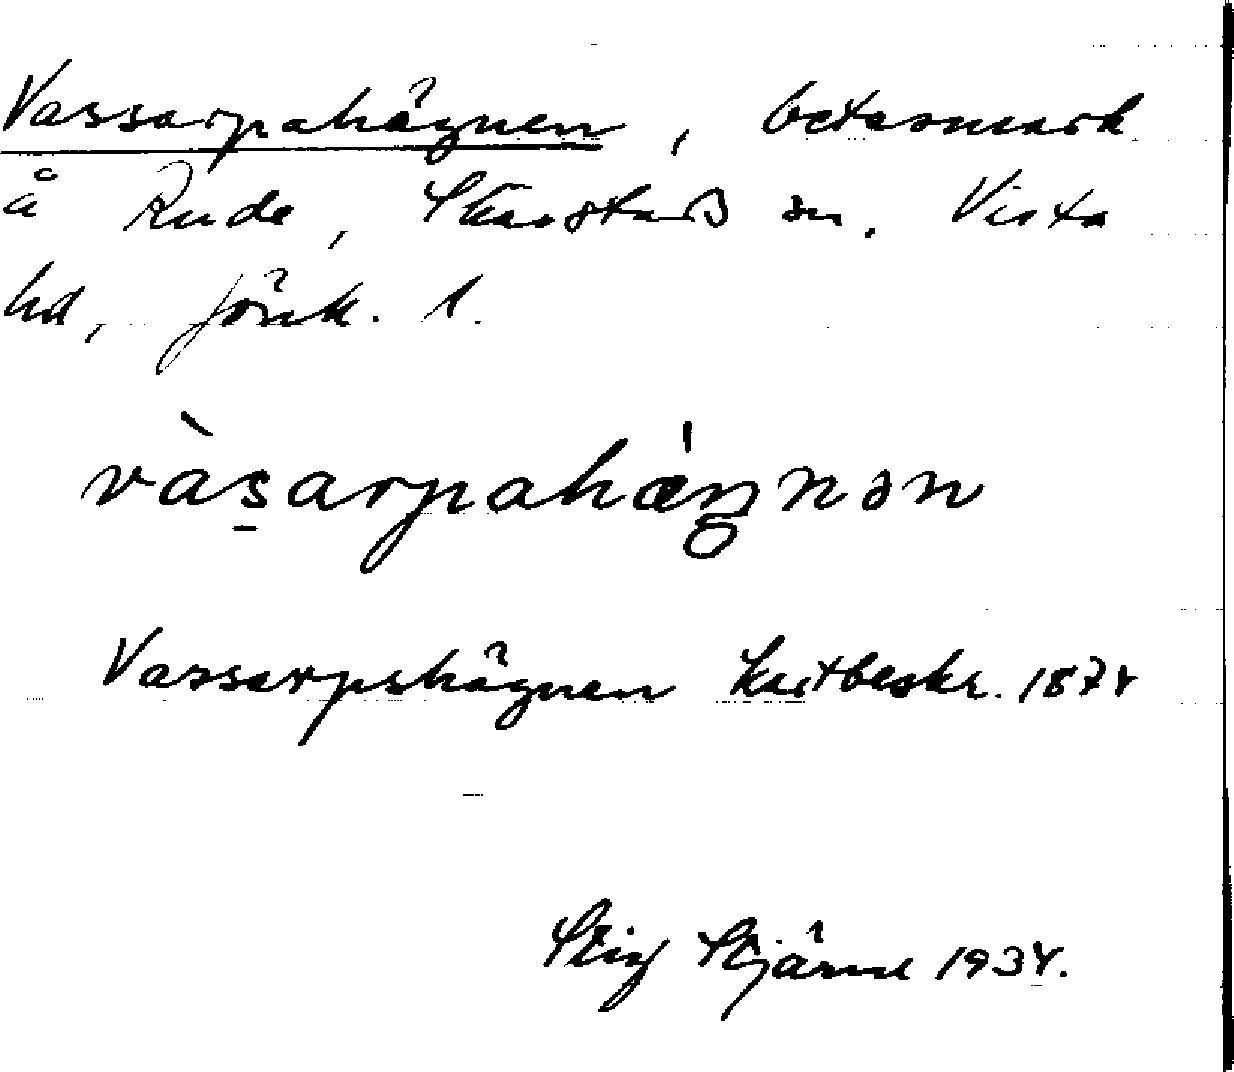 Vassarpahägnen, betesmark
å Rude, Skärstads sn. Vista
hd, Jönk. l.
vàsarpahæ̍ŋnən
Vassarpshägnen Kartbeskr. 1874
Stig Stjärne 1934.